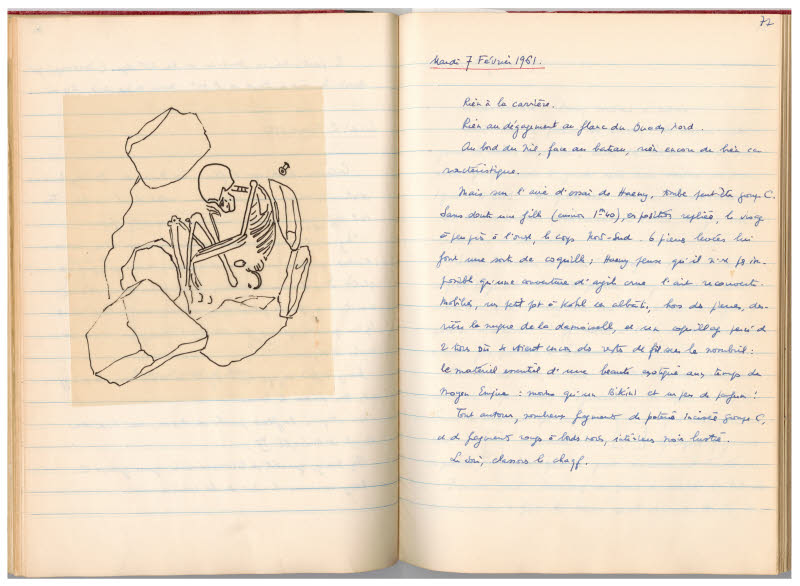 72
Mardi 7 Février 1961.
Rien à la carrière.
Rien au dégagement au flanc du Ouady Nord.
Au bord du Nil, face au bateau, rien encore de bien ca-
ractéristique.
Mais sur l'aire d'essai de Haeny, tombe peut-être groupe C.
Sans doute une fille (environ 1m40), en position repliée, le visage
à peu près à l'ouest, le corps Nord-Sud. 6 pierres levées lui
font une sorte de coquille; Haeny pense qu'il n'est pas im-
possible qu'une couverture d'argile crue l'ait recouverte.
Mobilier, un petit pot à Kohl en albâtre, hors des pierres, der-
rière la nuque de la demoiselle, et un coquillage percé de
2 trous où se voient encore des restes de fil sur le nombril:
le matériel essentiel d'une beauté exotique aux temps du
Moyen Empire: moins qu'un Bikini et un peu de parfum!
Tout autour, nombreux fragments de poterie incisée groupe C,
et de fragments rouges à bords noirs, intérieur noir lustré.
Le soir,